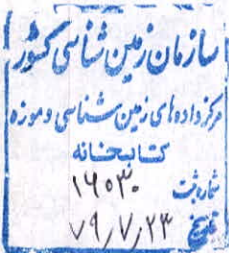 سازمان زمین شناسی کشور
مرکز داده های زمین شناسی و موزه
کتابخانه
شماره ثبت ۱۶۰۳۰
تاریخ ۷۹/۷/۲۳